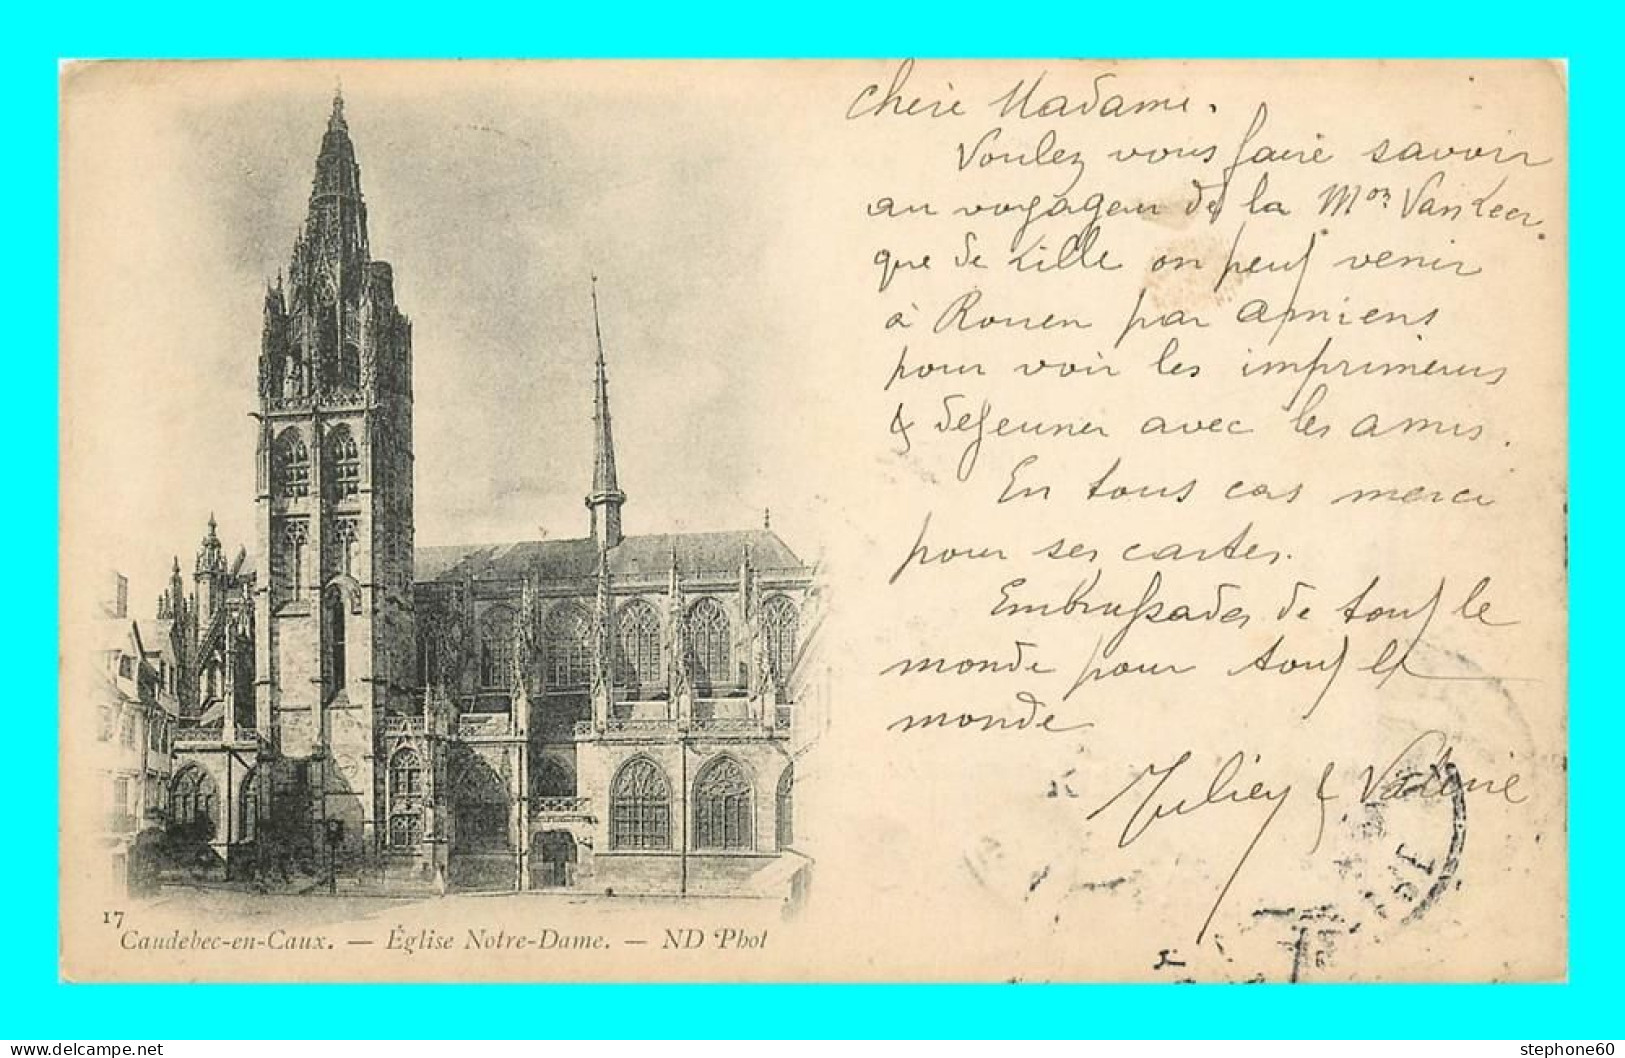 chère Madame.
Voulez vous faire savoir
au voyageur de la Mon Vankeer.
que de Lille on peut venir
à Rouen par Amiens
pour voir les imprimeurs
& dejeuner avec les amis.
En tous cas merci
pour ses cartes.
Embrassades de tout le
monde pour tout le
monde
& Valérie
17
Caudebec-en-Caux. — Église Notre-Dame. — ND Phot
www.delcampe.net
stephone60